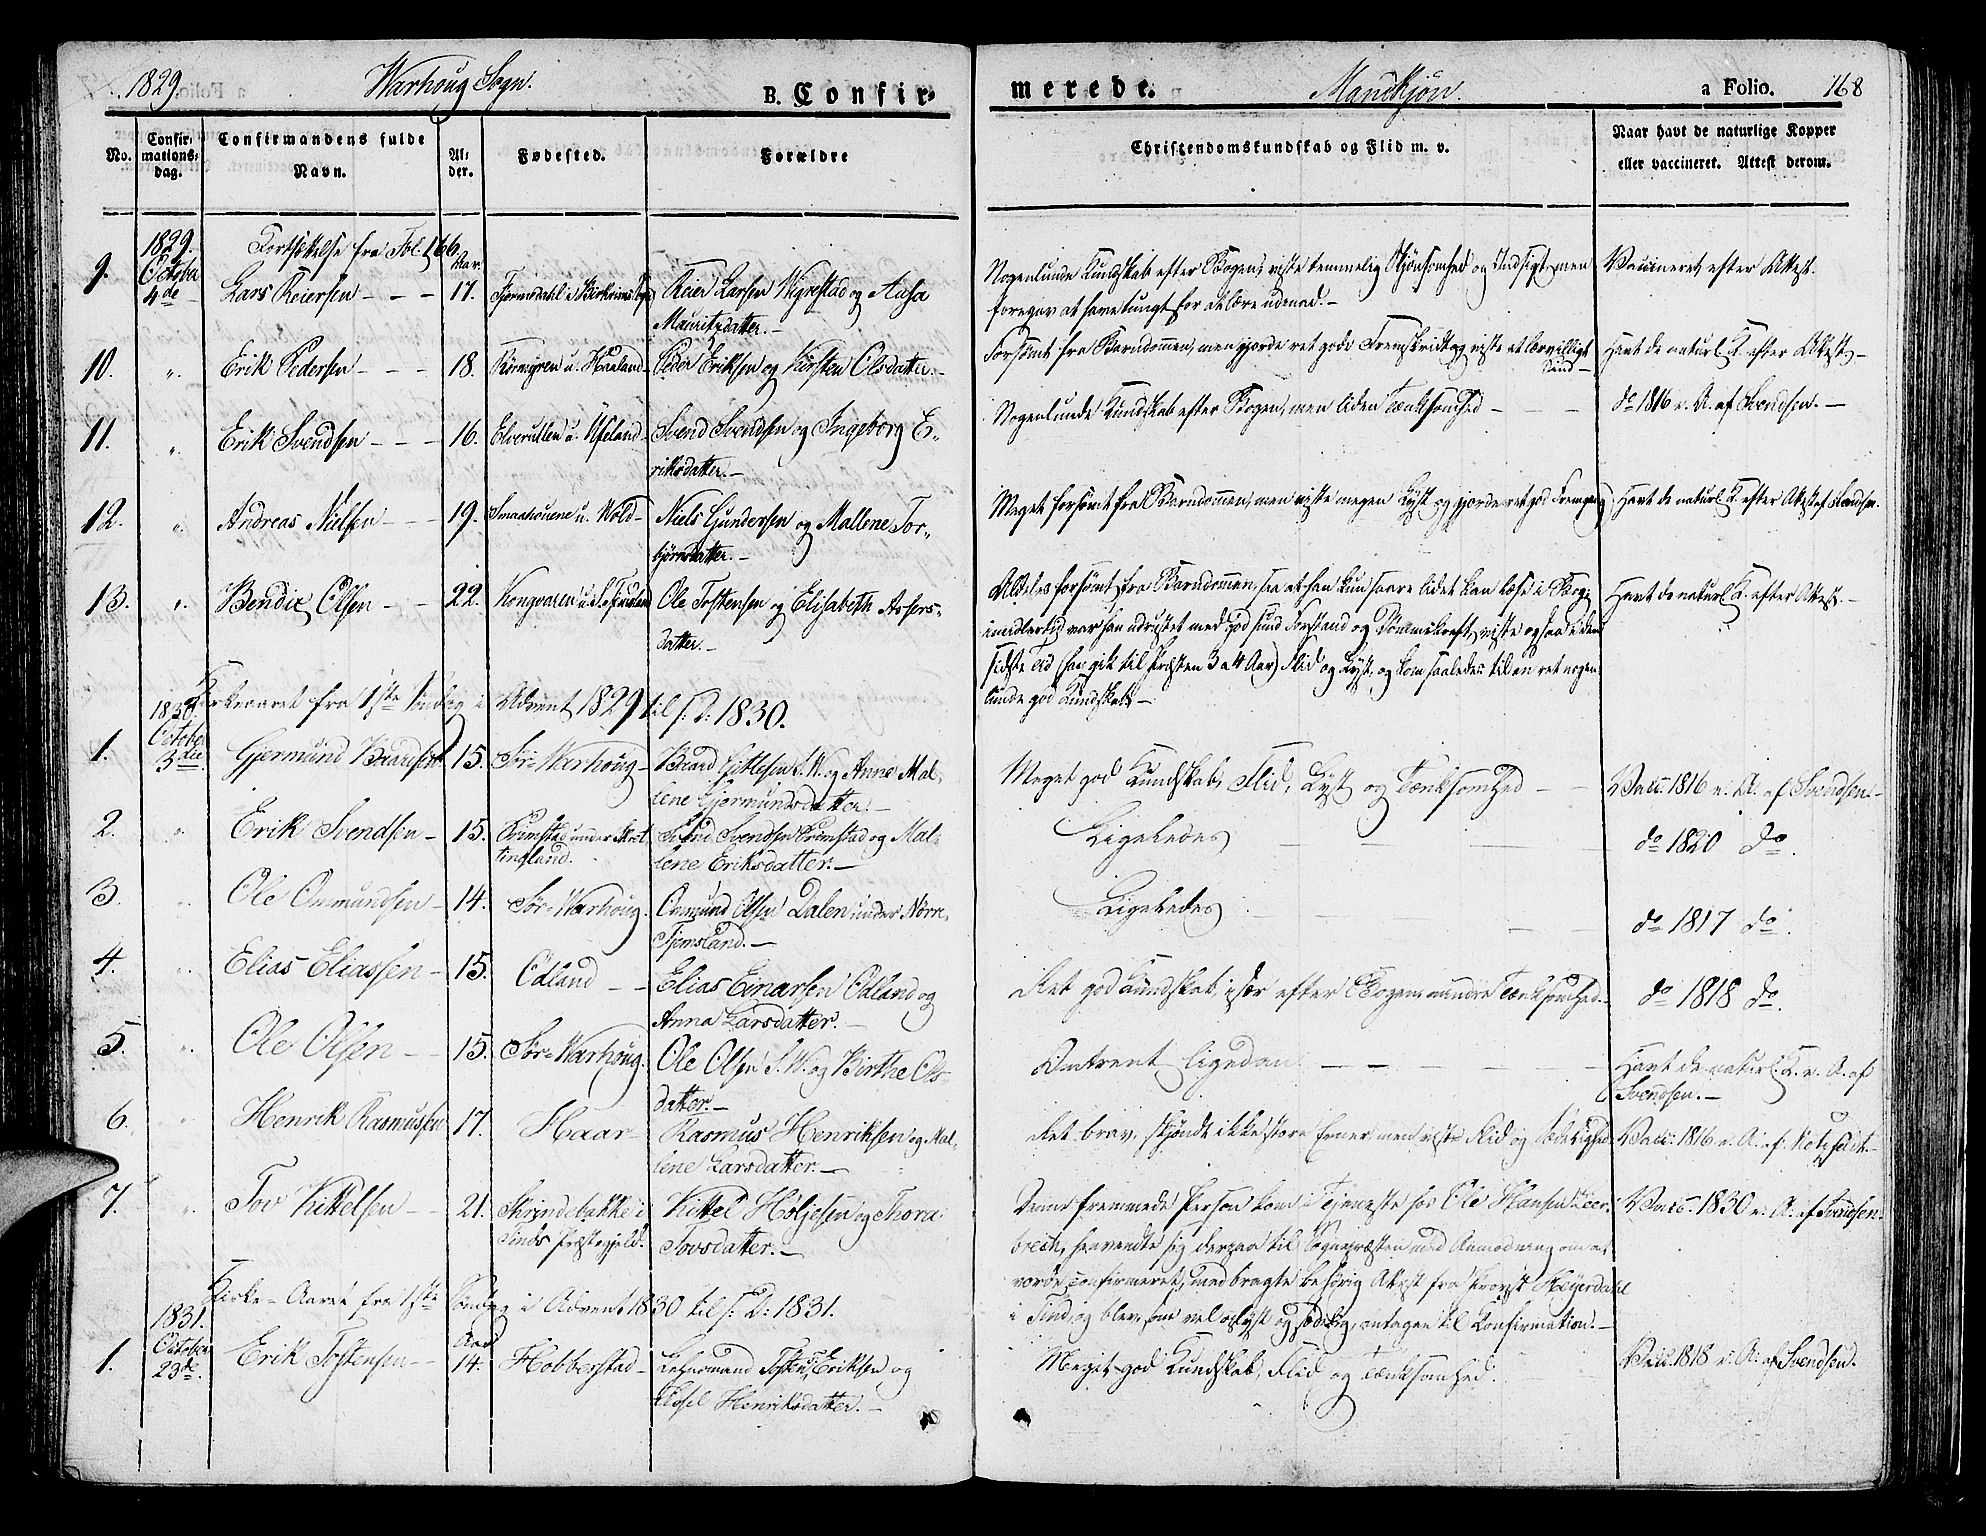 1829. Warhoug Sogn. B. Confir-
merede. Mandkjøn. a Folio. 168
No. Confirmationsdag. Confirmandens fulde Navn. Alder. Fødested. Forældre
Christendomskundskab og Flid m. v. Naar havt de naturlige Kopper eller vaccineret. Attest derom.
1829. Fortsættelse fra Fol. 166.
9. October 4de Lars Reiersen - - - Aar 17. Reier Larsen Wigrestad og Aasa
Mauritzdatter. -
Nogenlunde Kundskab efter Bogen, viste temmelig Skjönsomhed og Indsigt, men
foregav at have tungt for at lære udenad. -
Vaccineret efter Attest.
10. " Erik Pedersen - - - 18. u. Haaland - Peder Eriksen og Kirsten Olsdatter. -
Forsömt fra Barndommen, men gjorde ret gode Fremskridt og viste et lærvilligt
Sind -
Havt de naturl. K. efter Attest -
11. " Erik Svendsen - - - 16. u. Ueland - Svend Svendsen og Ingeborg E-
riksdatter. -
Nogenlunde Kundskab efter Bogen, men liden Tænksomhed - - -
do 1816 e. A. af Svendsen. -
12. " Andreas Nielsen - - 19. Smaahouene u. Wold - Niels Gundersen og Mallene Tor-
björnsdatter. -
Meget forsömt fra Barndommen, men viste megen Lyst og gjorde ret god Fremgang
Havt de naturl. K. efter Attest af Svendsen.
13. " Bendix Olsen - - 22. Ole Tostensen og Elisabeth Assers-
datter. -
Aldeles forsömt fra Barndommen, saa at han kun saare lidet kan læse i Bog;
imidlertid var han udrustet med god sund Forstand og Dömmekraft, viste ogsaa i den
sidste Tid (han gik til Præsten 3 a 4 Aar) Flid og Lyst, og kom saaledes til en ret nogen-
lunde god Kundskab. -
Havt de naturl. K. efter Attest. -
Kirkeaaret fra 1ste Söndag i Advent 1829 til s. D: 1830.
1830.
1. October 3die Gjermund Baardsen 15. Sör-Warhoug - Baard Gitlesen S. W. og Anne Mal-
lene Gjermundsdatter. -
Meget god Kundskab, Flid, Lyst og Tænksomhed - -
Vacc: 1816 e. A. af Svendsen. -
2. " Erik Svendsen - 15. Brumstad under
Svend Svendsen Brumstad og Mal-
lene Eriksdatter. -
Ligeledes - - -
do 1820 do.
3. " Ole Onmundsen - 14. Sör-Warhoug. Onmund Olsen Dalen under Nörre
Tjemsland. -
Ligeledes - - -
do 1817 do.
4. " Elias Eliassen - 15. Odland - - Elias Einarsen Odland og
Anna Larsdatter. -
Ret god Kundskab, især efter Bogen, mindre Tænksomhed. -
do 1818 do.
5. " Ole Olsen - - 15. Sör-Warhoug. Ole Olsen S. W. og Birthe Ols-
datter. -
Omtrent ligedan. - - - -
Havt de naturl. K. e. A. af
Svendsen. -
6. " Henrik Rasmussen 17. Haar - Rasmus Henriksen og Mal-
lene Larsdatter. -
Ret brav, skjöndt ikke store Evner, men viste Flid og Sædelighed.
Vacc: 1816 e. A. af
7. " Tov Kittelsen - - 21. Skrindebakke i
Tinds Præstegjeld. Kittel Höljesen og Thora
Tovsdatter. -
Denne fremmede Person kom i Tjeneste hos Ole Hansen
henvendte sig derpaa til Sognepræsten med Anmodning om at
vorde confirmeret, medbragte behörig Attest fra Provst Meierdahl
i Tind, og blev, som vel oplyst og sædelig, antagen til Confirmation. -
Vacc. 1830 e. A. af Svendsen.
Kirke-Aaret fra 1ste Söndag i Advent 1830 til s. D: 1831.
1831.
1. October 23de. Erik Tostensen - - Aar 14. Hobberstad - Lehnsmand Tosten Eriksen og
Sissel Henriksdatter. -
Meget god Kundskab, Flid og Tænksomhed.
Vacc. 1818 e. A. af Svendsen.